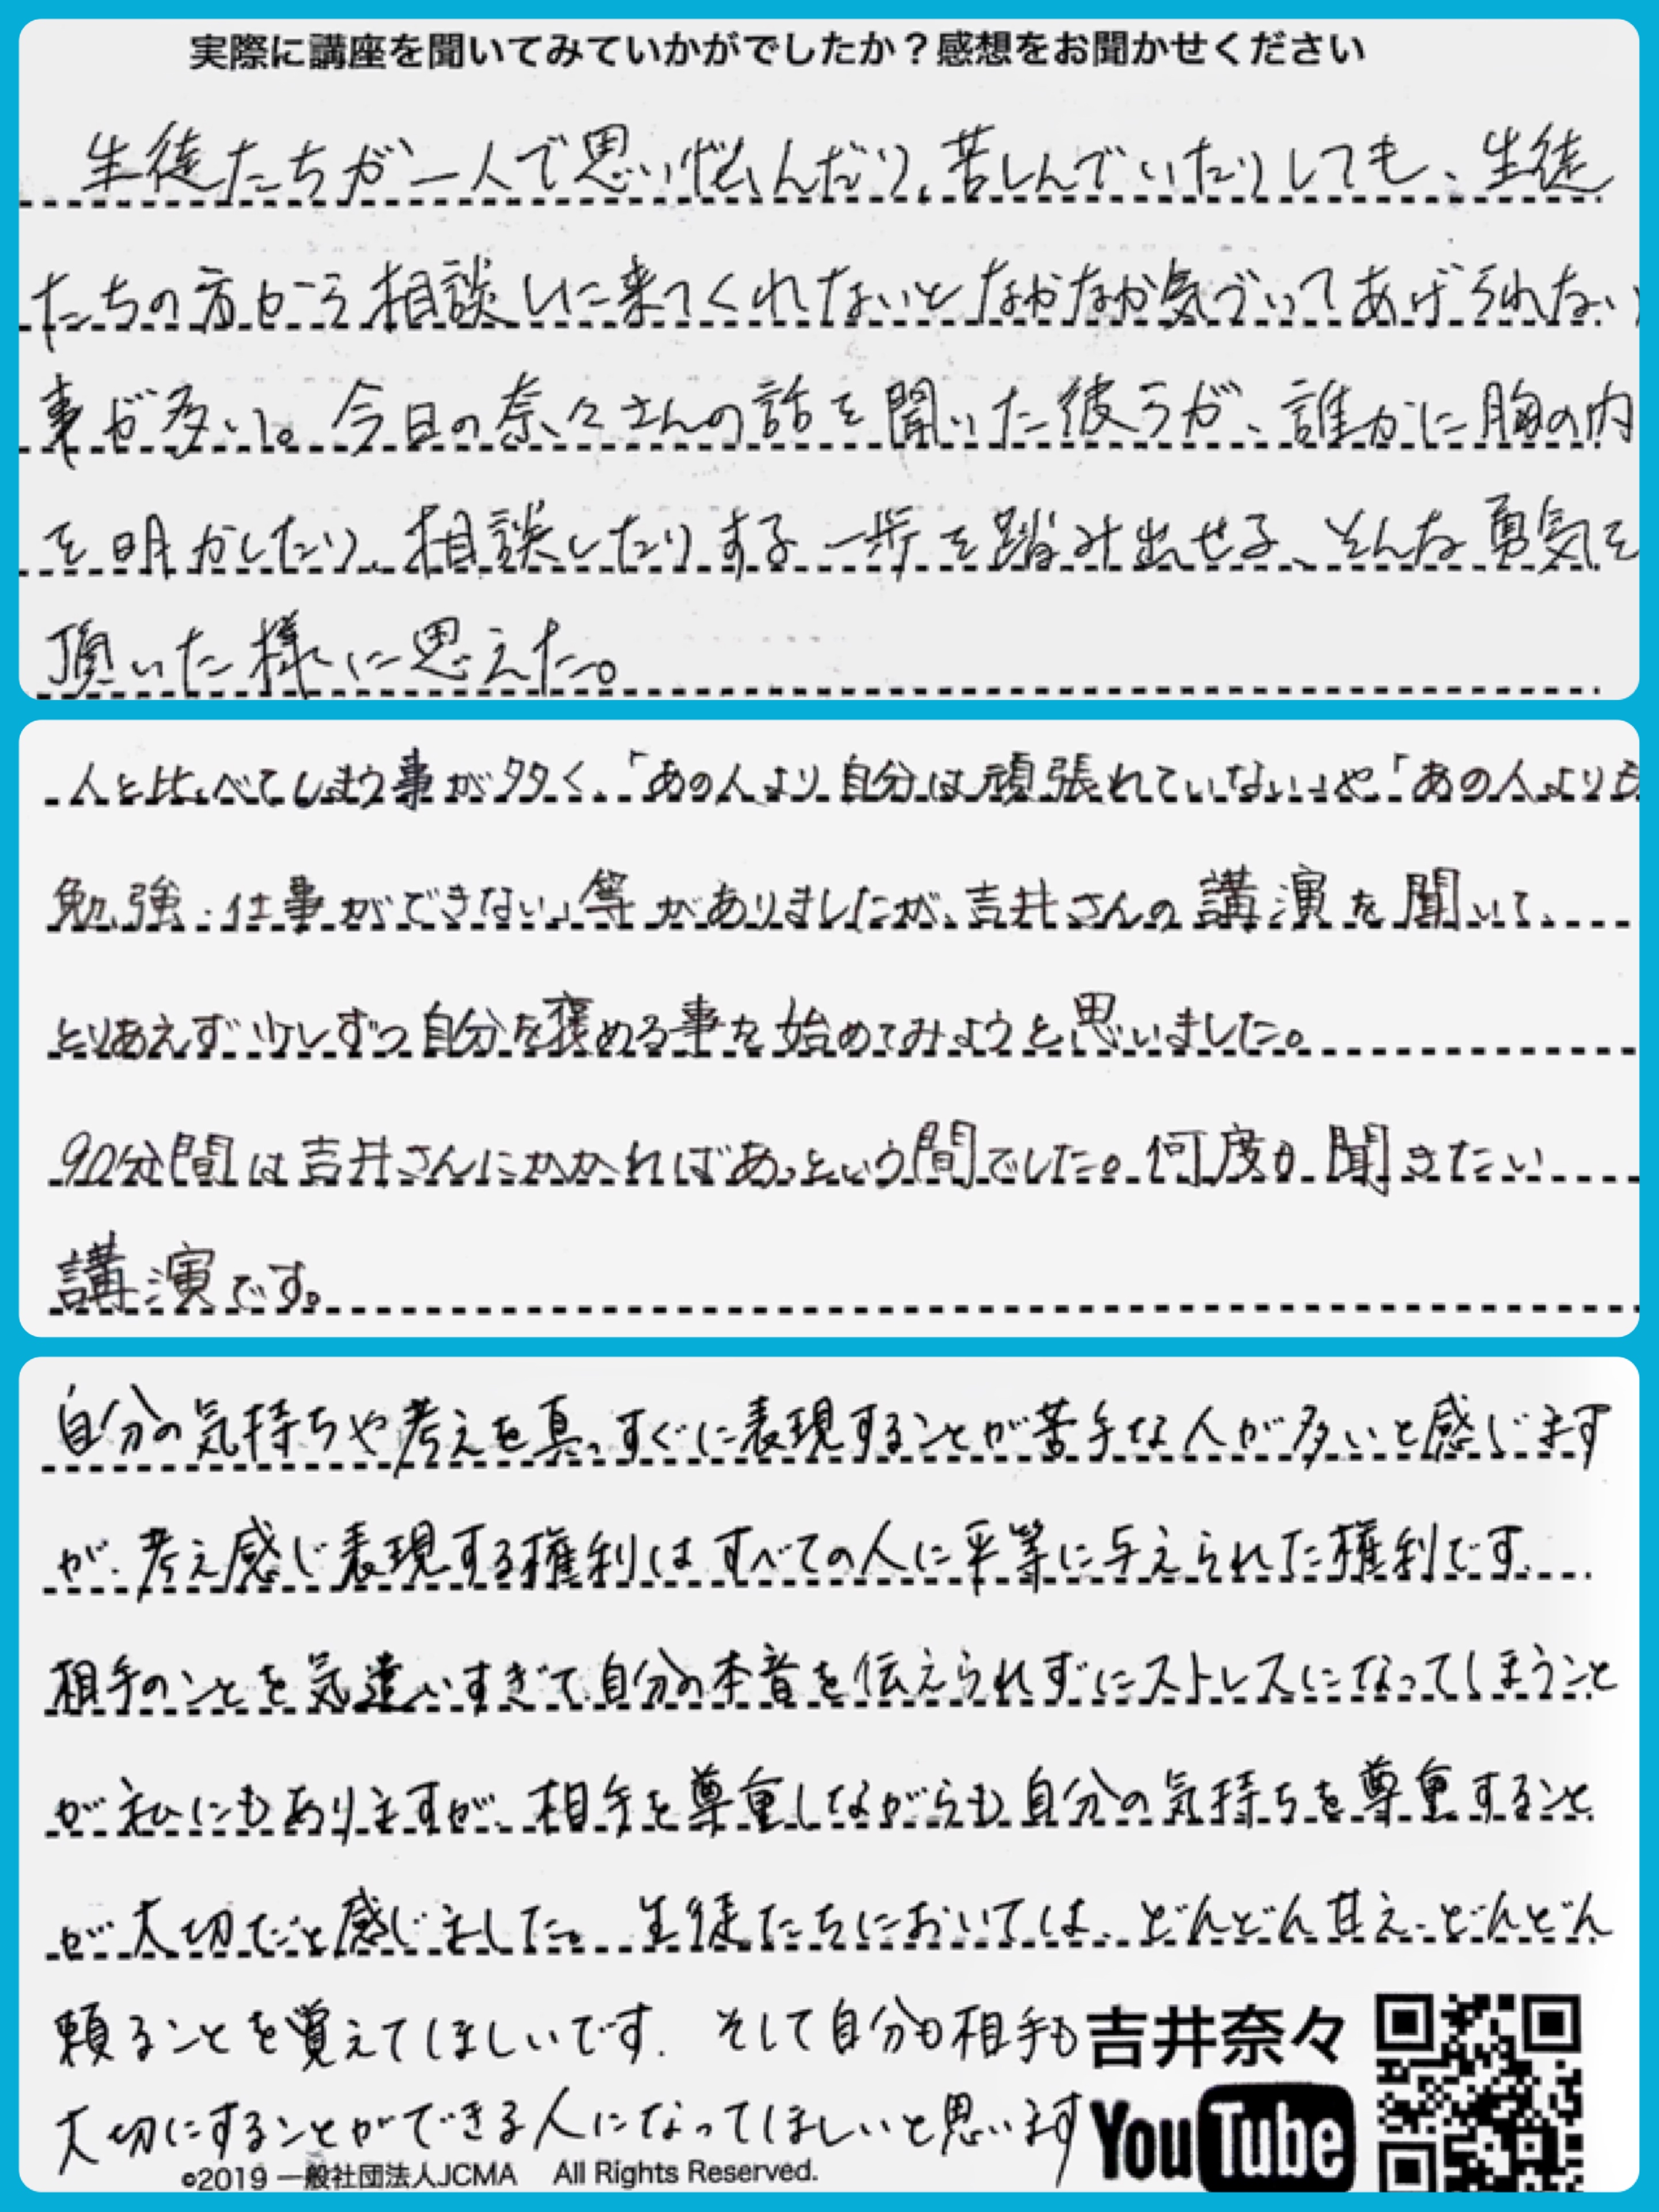 実際に講座を聞いてみていかがでしたか？感想をお聞かせください
生徒たちが一人で思い悩んだり、苦しんでいたりしても、生徒
たちの方から相談しに来てくれないとなかなか気づいてあげられない
事が多い。今日の奈々さんの話を聞いた彼らが、誰かに胸の内
を明かしたり、相談したりする一歩を踏み出せる、そんな勇気を
頂いた様に思えた。
人と比べてしまう事が多く、「あの人より自分は頑張れていない」や「あの人よりも
勉強・仕事ができない」等がありましたが、吉井さんの講演を聞いて、
とりあえず少しずつ自分を褒める事を始めてみようと思いました。
90分間は吉井さんにかかればあっという間でした。何度か聞きたい
講演です。
自分の気持ちや考えを真っすぐに表現することが苦手な人が多いと感じます
が、考え感じ表現する権利はすべての人に平等に与えられた権利です。
相手のことを気遣いすぎて、自分の本音を伝えられずにストレスになってしまうこと
が私にもありますが、相手を尊重しながらも自分の気持ちを尊重すること
が大切だと感じました。生徒たちにおいては、どんどん甘え、どんどん
頼ることを覚えてほしいです。そして自分も相手も
大切にすることができる人になってほしいと思います
吉井奈々
YouTube
©2019 一般社団法人JCMA All Rights Reserved.